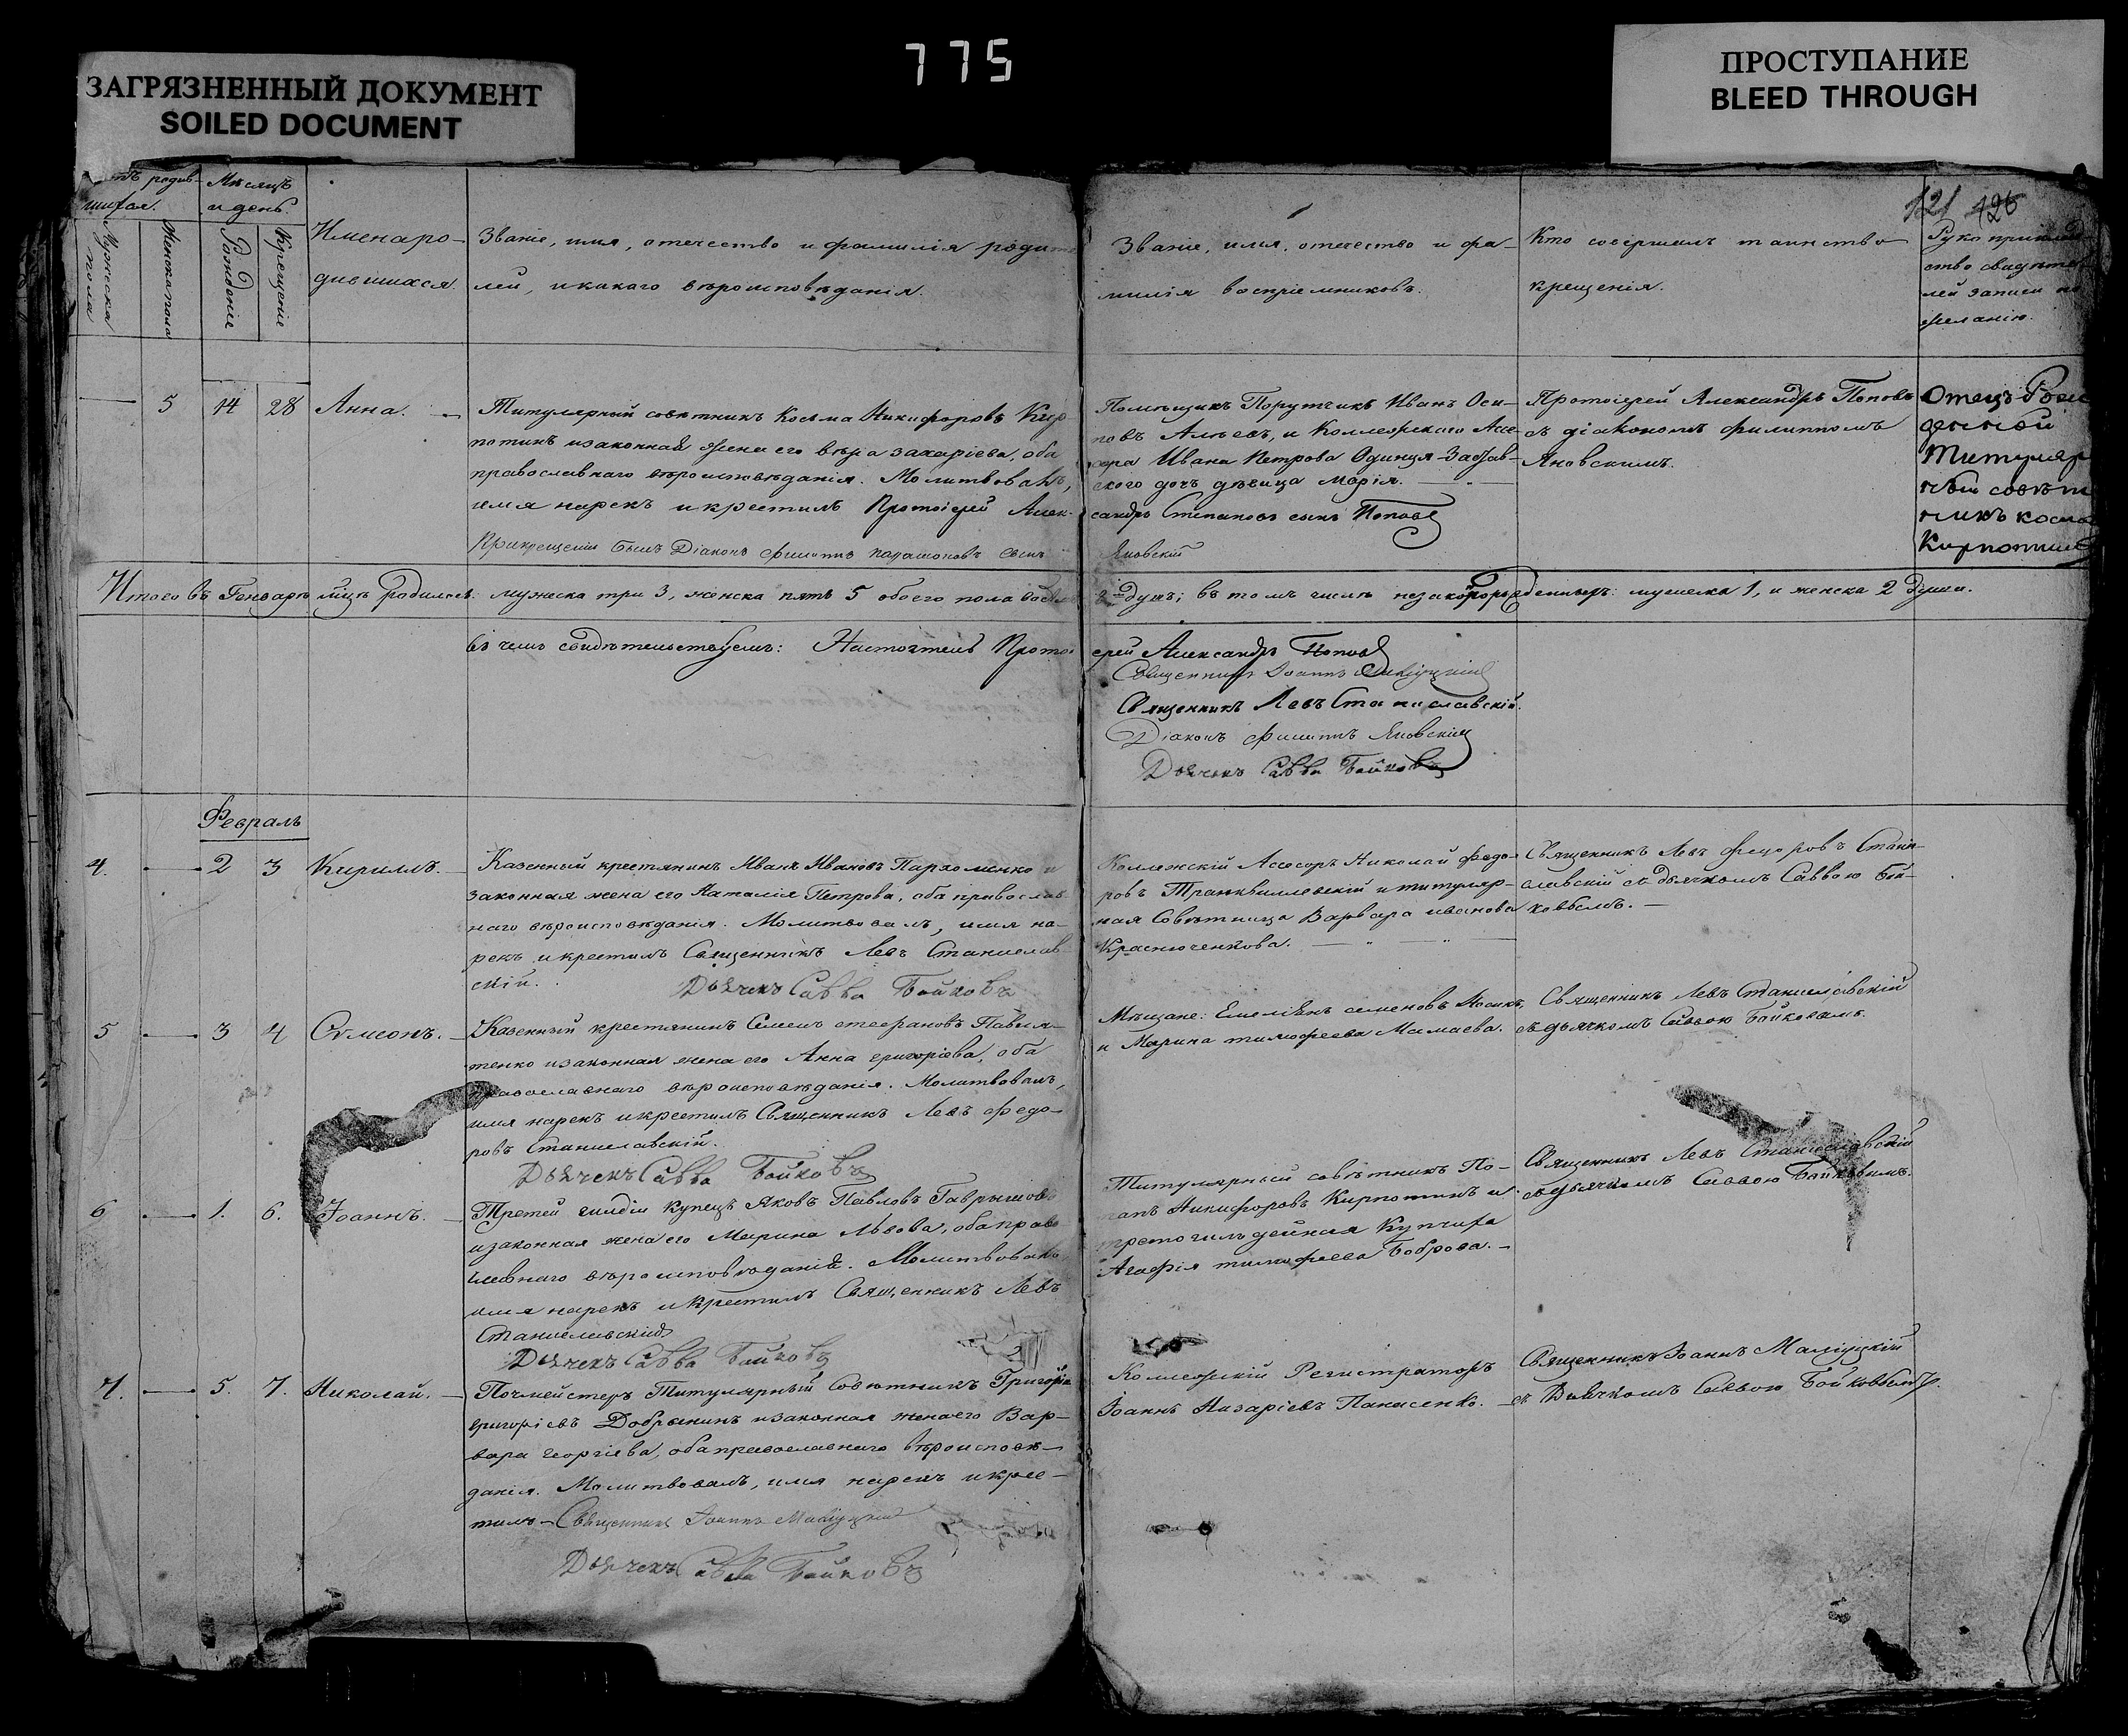 775
ЗАГРЯЗНЕННЫЙ ДОКУМЕНТ
SOILED DOCUMENT
ПРОСТУПАНИЕ
BLEED THROUGH
121 126
родив-
шихся.
Мужеска пола
Женска пола
Мѣсяцъ
и день.
Рожденіе
Крещеніе
Имена ро-
дившихся.
Званіе, имя, отечество и фамилія родите
лей, и какаго вѣроисповѣданія.
Званіе, имя, отечество и фа-
милія воспріемниковъ.
Кто совершалъ таинство
крещенія.
Рукоприклад
ство свидѣте
лей записи по
желанію.
5 14 28 Анна.
Титулярный совѣтникъ Косма Никифоровъ Кир
потинъ и законная жена его Вѣра Захаріева, оба
православнаго вѣроисповѣданія. Молитвовалъ,
имя нарекъ и крестилъ Протоіерей Алек-
сандръ Степановъ сынъ Поповъ
При крещеніи былъ Діаконъ Филиппъ сынъ
Яновскій
Помѣщикъ Порутчикъ Иванъ Оси-
повъ Алѣевъ, и Коллежскаго Ассе-
сора Ивана Петрова
ского дочь дѣвица Марія.
Протоіерей Александръ Поповъ
съ діакономъ Филиппомъ
Яновскимъ.
Отецъ Рож
денной
Титуляр
ный совѣт
никъ Косма
Кирпотинъ
Итого въ Генварѣ мцѣ родилось: мужеска три 3, женска пять 5 обоего пола восемь
8 душъ; въ томъ числѣ незаконнорожденныхъ: мужеска 1, и женска 2 души.
въ чемъ свидѣтельствуемъ: Настоятель Прото-
ерей Александръ Поповъ
Священникъ Іоаннъ
Священникъ Левъ Станиславскій.
Діаконъ Филиппъ Яновскій
Дьячекъ Савва Бойковъ
Февраль
4. 2 3 Кириллъ.
Казенный крестянинъ Иванъ Ивановъ Пархоменко и
законная жена его Наталія Петрова, оба православ
наго вѣроисповѣданія. Молитвовалъ, имя на-
рекъ и крестилъ Священникъ Левъ Станислав
скій.
Дьячекъ Савва Бойковъ
Коллежскій Ассесоръ Николай Федо-
ровъ Транквиллевскій и титуляр-
ная Совѣтница Варвара Иванова
Краснюченкова.
Священникъ Левъ Федоровъ Стани-
славскій съ дьячкомъ Саввою Бой-
ковымъ.
5 3 4 Сѵмеонъ.
Казенный крестянинъ Семенъ Стефановъ Павли-
тенко и законная жена его Анна Григоріева, оба
православнаго вѣроисповѣданія. Молитвовалъ,
имя нарекъ и крестилъ Священникъ Левъ Федо-
ровъ Станиславскій.
Дьячекъ Савва Бойковъ
Мѣщане: Емеліянъ Семеновъ Носикъ,
и Марина Тимофеева Мамаева.
Священникъ Левъ Станиславскій
съ дьячкомъ Саввою Бойковымъ.
6 1. 6. Іоаннъ.
Третей гилдіи купецъ Яковъ Павловъ Гаврышовъ
и законная жена его Марина Львова, оба право
славнаго вѣроисповѣданія. Молитвовалъ
имя нарекъ и крестилъ Священникъ Левъ
Станиславскій
Дьячекъ Савва Бойковъ
Титулярный совѣтникъ По-
тапъ Никифоровъ Кирпотинъ и
третогильдейная Купчиха
Агафія Тимофеева Боброва.
Священникъ Левъ Станиславскій
съ дьячкомъ Саввою Бойковымъ.
7. 5. 7. Николай.
Почмейстеръ Титулярный Совѣтникъ Григорій
Григоріевъ Добрынинъ и законная жена его Вар-
вара Георгіева, оба православнаго вѣроисповѣ-
данія. Молитвовалъ, имя нарекъ и крес-
тилъ Священникъ Іоаннъ
Дьячекъ Савва Бойковъ
Коллежскій Регистраторъ
Іоаннъ Назаріевъ Панасенко.
Священникъ Іоаннъ
съ Дьячкомъ Саввою Бойковымъ.